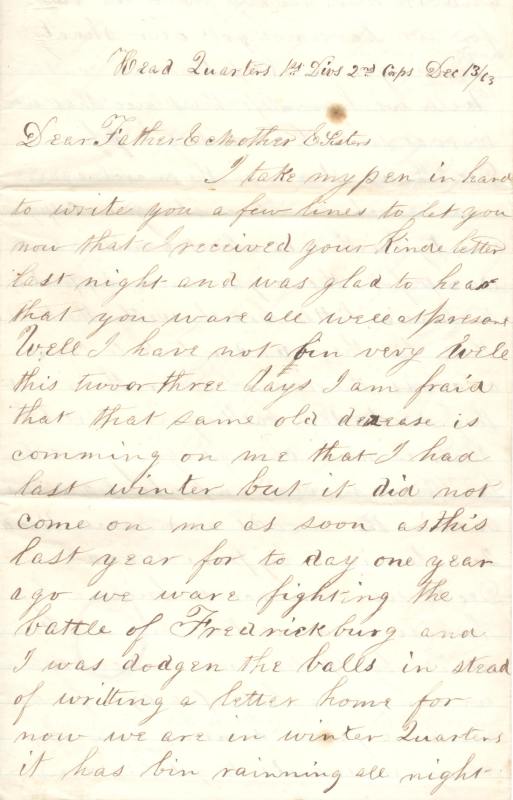 Head Quarters 1st Divs 2nd Corps Dec 13/63
Dear Father & Mother & Sisters
I take my pen in hand
to write you a few lines to let you
now that I received your kinde letter
last night and was glad to hear
that you ware all well at presant
Well I have not bin very well
this two or three days I am fraid
that that same old dezease is
comming on me that I had
last winter but it did not
come on me as soon as this
last year for to day one year
ago we ware fighting the
battle of Fredrickburg and
I was dodgen the balls in stead
of writting a letter home for
now we are in winter Quarters
it has bin rainning all night